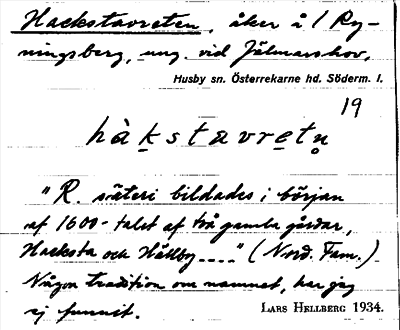 Hackstavreten, åker å 1 Ry-
ningsberg, ung. vid Jälmarshov,
Husby sn. Österrekarne hd. Söderm. l.
19
hàkstavretn̥
"R. säteri bildades i början
af 1600-talet af två gamla gårdar,
Hacksta och Hällby...." (Nord. Fam.)
Någon tradition om namnet, har jag
ej funnit.
LARS HELLBERG 1934.